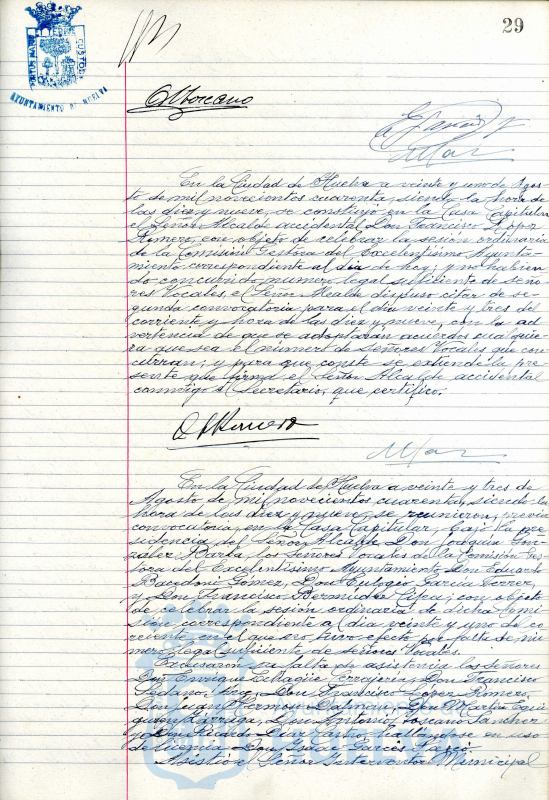 29
AYUNTAMIENTO DE HUELVA
En la Ciudad de Huelva a veinte y uno de Agos-
to de mil novecientos cuarenta, siendo la hora de
las diez y nueve, se constituyó en la Casa Capitular
el Señor Alcalde accidental Don Francisco López
Romero, con objeto de celebrar la sesión ordinaria
de la Comisión Gestora del Excelentísimo Ayunta-
miento, correspondiente al día de hoy; y no habien-
do concurrido número legal suficiente de seño-
res Vocales, el Señor Alcalde dispuso citar de se-
gunda convocatoria para el día veinte y tres del
corriente y hora de las diez y nueve, con la ad-
vertencia de que se adoptarán acuerdos cualquie-
ra que sea el número de Señores Vocales que con-
curran; y para que conste se extiende la pre-
sente que firma el Señor Alcalde accidental
conmigo el Secretario, que certifico.
En la Ciudad de Huelva a veinte y tres de
Agosto de mil novecientos cuarenta, siendo la
hora de las diez y nueve, se reunieron, previa
convocatoria, en la Casa Capitular, bajo la pre-
sidencia del Señor Alcalde Don Joaquín Gon-
zález Barba, los Señores Vocales de la Comisión Ges-
tora del Excelentísimo Ayuntamiento Don Eduardo
Gómez, Don Eutogio García Ferrer,
y Don Francisco Bermúdez; con objeto
de celebrar la sesión ordinaria de dicha Comi-
sión correspondiente al día veinte y uno del co-
rriente, en el que no tuvo efecto por falta de nú-
mero legal suficiente de señores Vocales.
Excusaron su falta de asistencia los señores
Don Enrique Don Francisco
Don Francisco López Romero,
Don Juan Don Martín
Don Antonio Toscano Sánchez
y Don Ricardo hallándose en uso
de licencia Don Isaac Garcés
Asistió el Señor Interventor Municipal